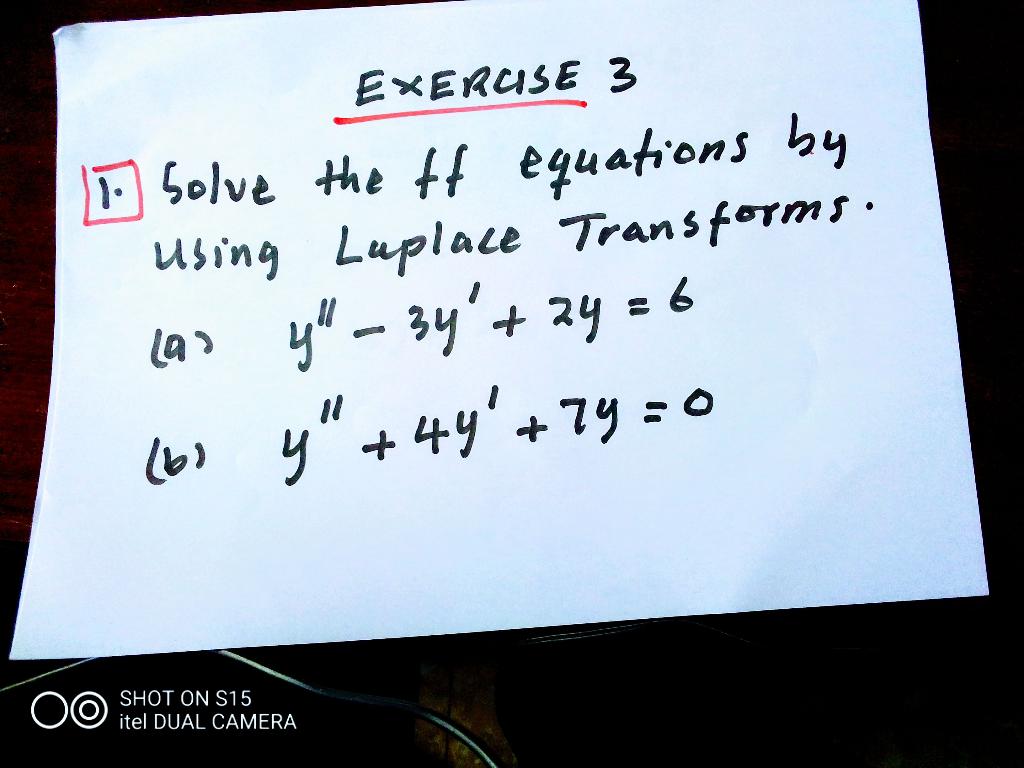 EXERCISE 3
1. Solve the ff equations by
Using Laplace Transforms.
(a) y'' - 3y' + 2y = 6
(b) y'' + 4y' + 7y = 0
SHOT ON S15
itel DUAL CAMERA